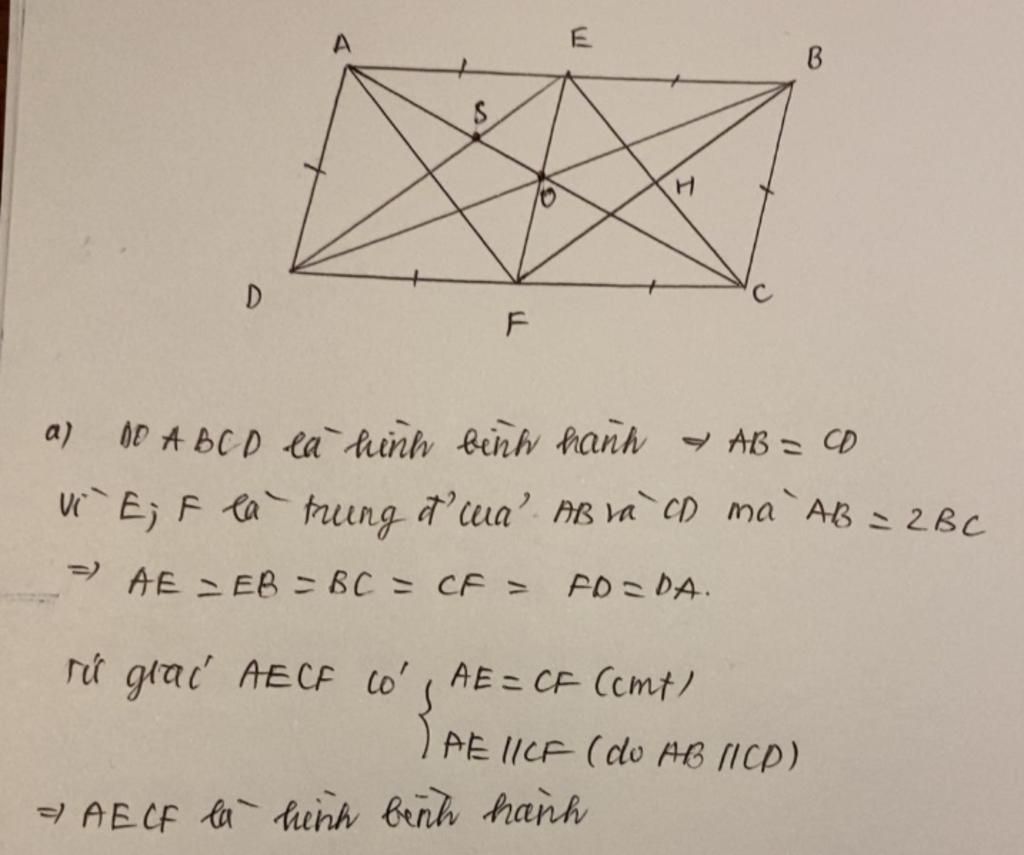 A E B
S
O H
D F C
a) Do ABCD là hình bình hành ⇒ AB = CD
vì E; F là trung đ' của AB và CD mà AB = 2BC
⇒ AE = EB = BC = CF = FD = DA.
Tứ giác AECF có { AE = CF (cmt)
AE // CF (do AB // CD)
⇒ AECF là hình bình hành